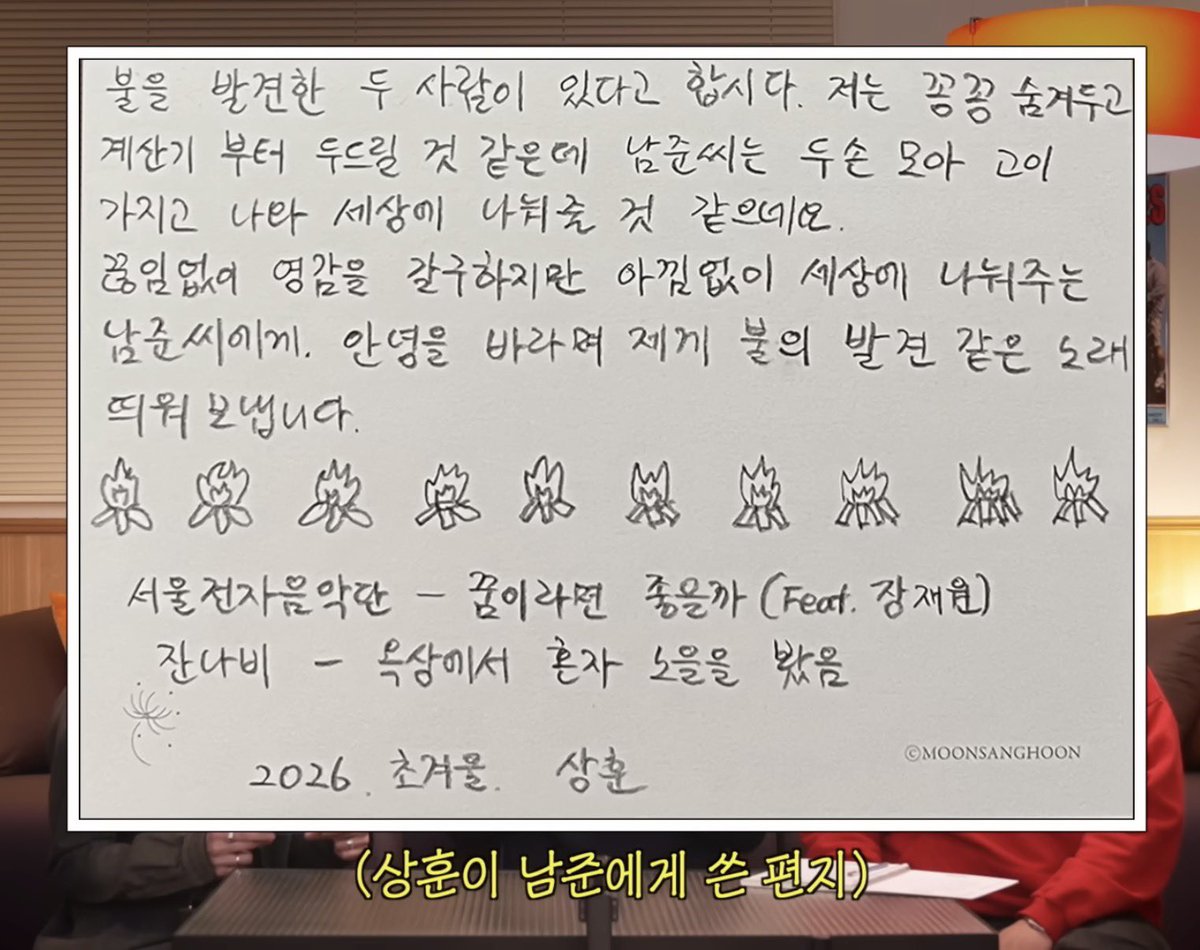 불을 발견한 두 사람이 있다고 합시다. 저는 꽁꽁 숨겨두고
계산기 부터 두드릴 것 같은데 남준씨는 두손 모아 고이
가지고 나와 세상에 나눠줄 것 같으네요.
끊임없이 영감을 갈구하지만 아낌없이 세상에 나눠주는
남준씨에게. 안녕을 바라며 제게 불의 발견 같은 노래
띄워 보냅니다.
서울전자음악단 - 꿈이라면 좋을까 (Feat. 장재원)
잔나비 - 옥상에서 혼자 노을을 봤음
2026. 초겨울. 상훈
©MOONSANGHOON
(상훈이 남준에게 쓴 편지)